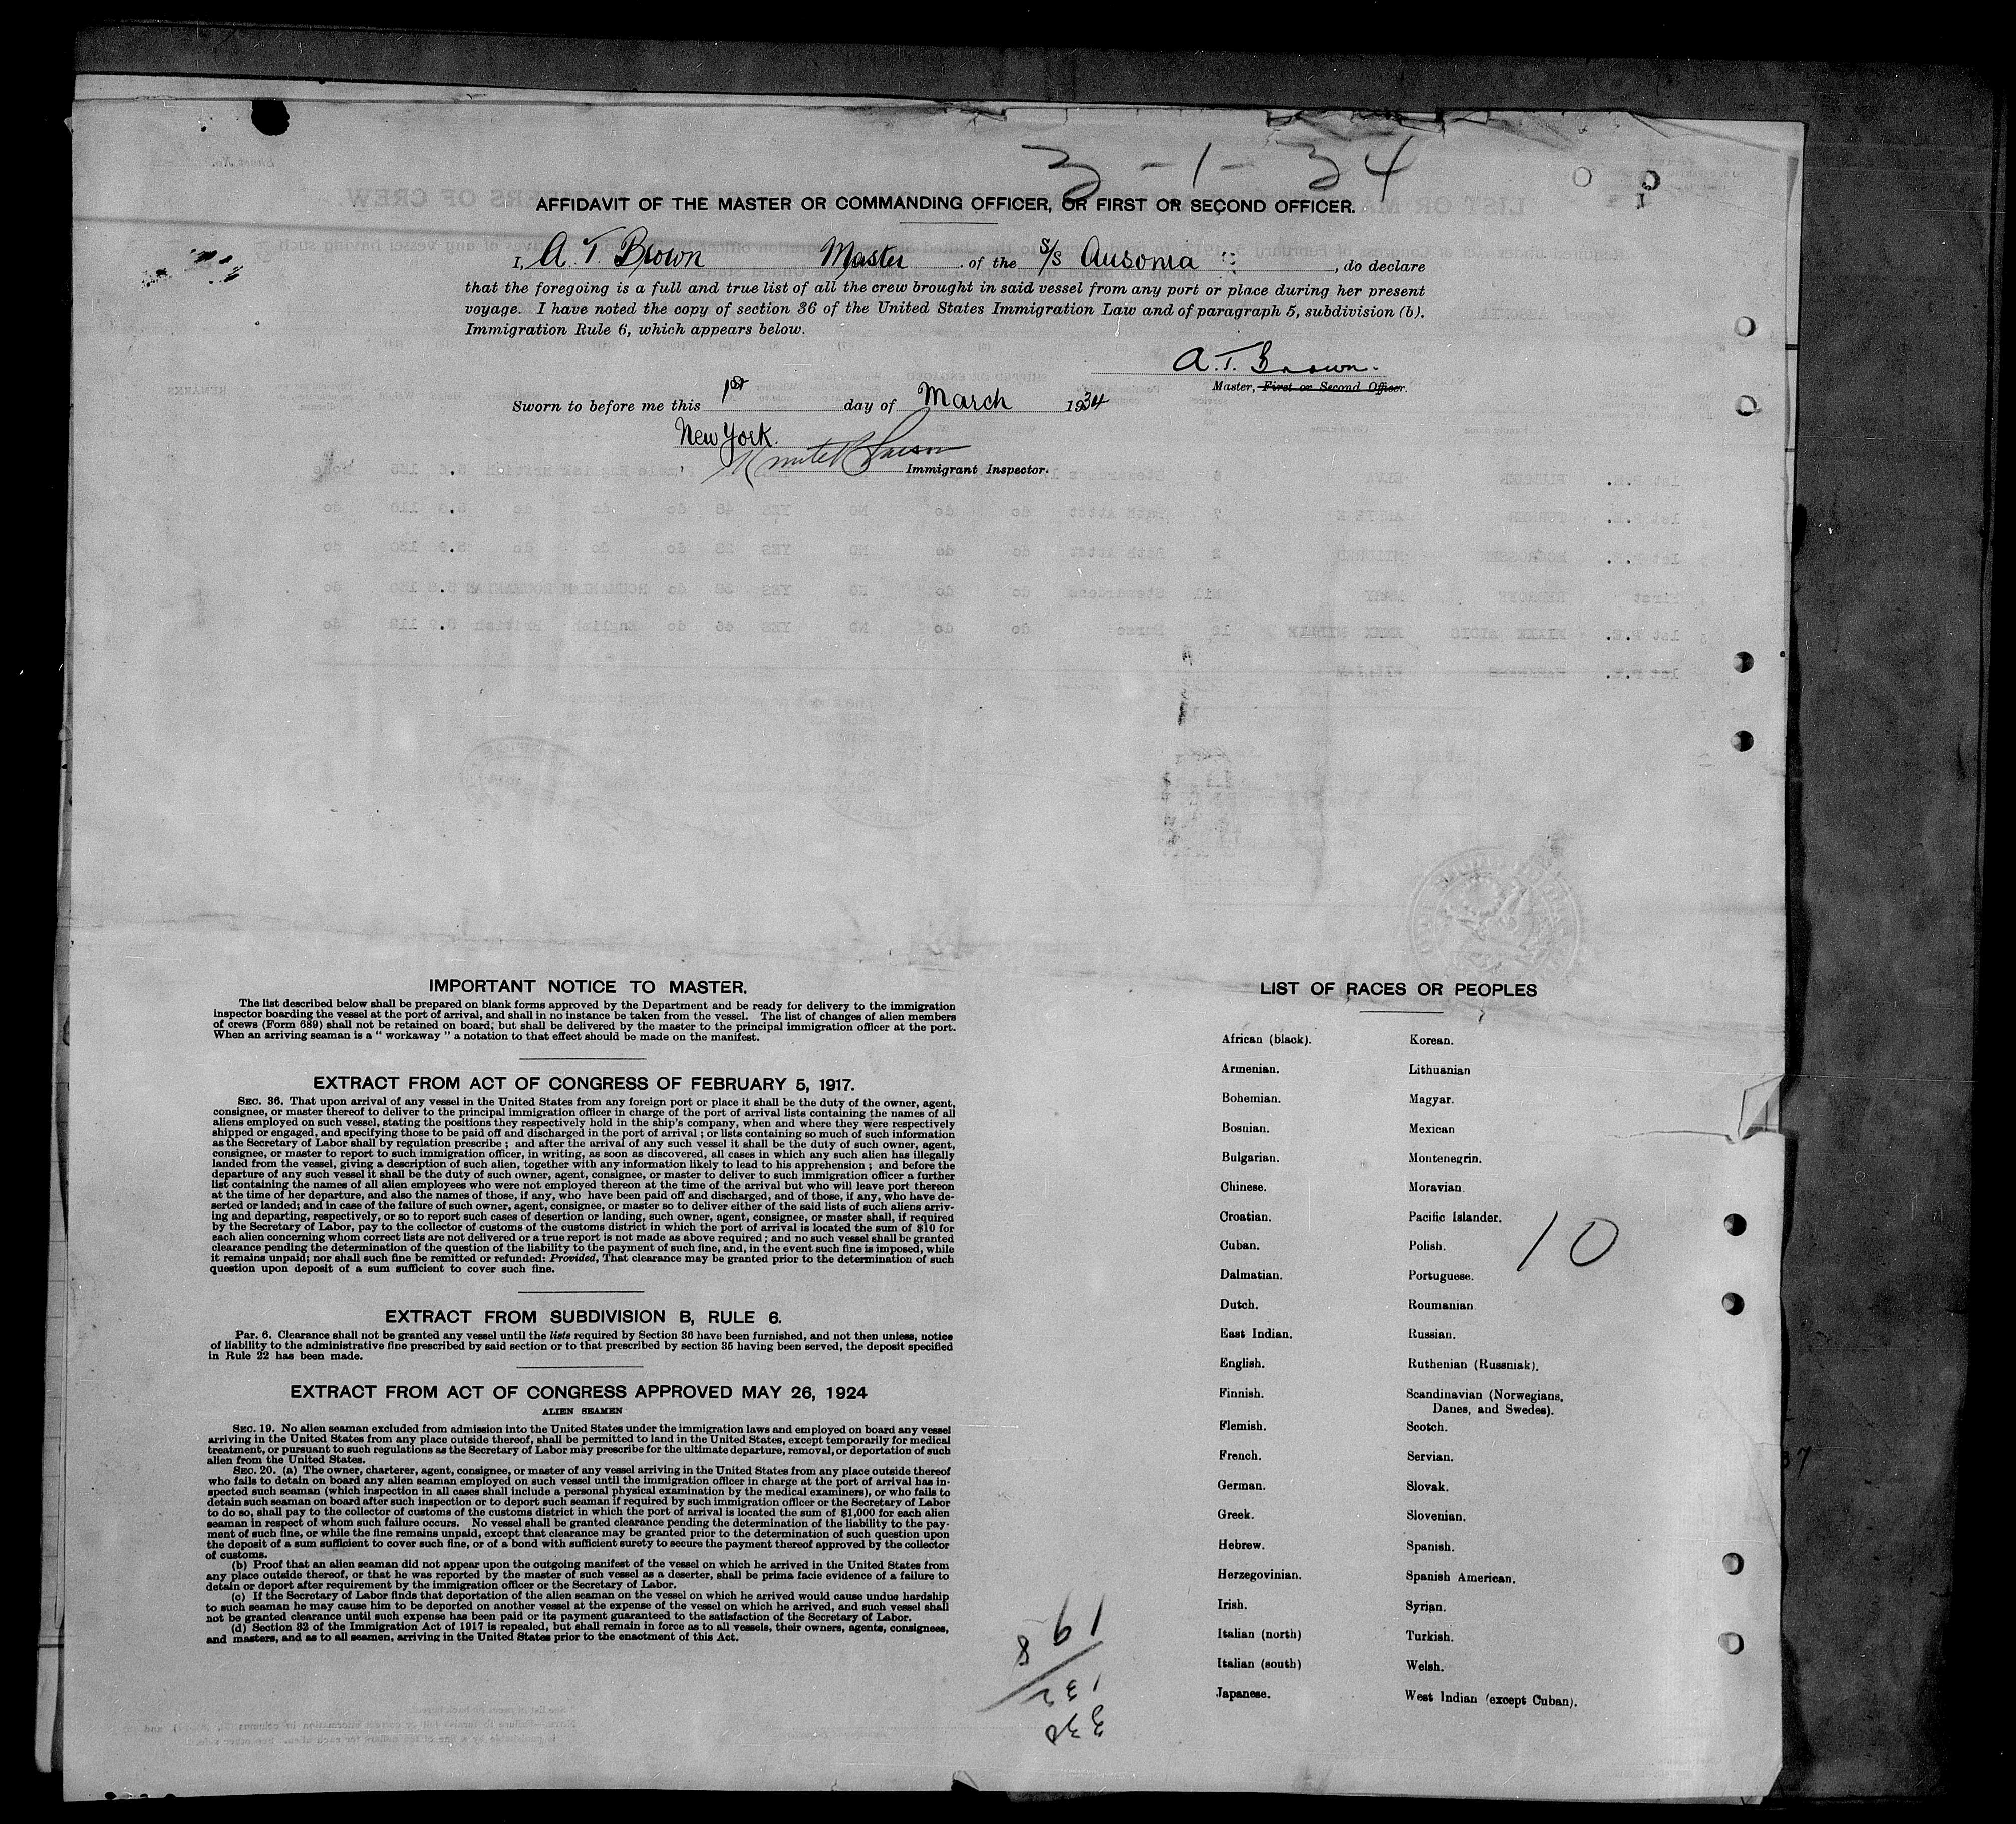 3-1-34
AFFIDAVIT OF THE MASTER OR COMMANDING OFFICER, OR FIRST OR SECOND OFFICER.
I, A. T. Brown Master of the S/S Ausonia, do declare
that the foregoing is a full and true list of all the crew brought in said vessel from any port or place during her present
voyage. I have noted the copy of section 36 of the United States Immigration Law and of paragraph 5, subdivision (b).
Immigration Rule 6, which appears below.
A. T. Brown.
Master, First or Second Officer.
Sworn to before me this 1st day of March 1934
New York.
Immigrant Inspector.
IMPORTANT NOTICE TO MASTER.
The list described below shall be prepared on blank forms approved by the Department and be ready for delivery to the immigration
inspector boarding the vessel at the port of arrival, and shall in no instance be taken from the vessel. The list of changes of alien members
of crews (Form 689) shall not be retained on board; but shall be delivered by the master to the principal immigration officer at the port.
When an arriving seaman is a "workaway" a notation to that effect should be made on the manifest.
EXTRACT FROM ACT OF CONGRESS OF FEBRUARY 5, 1917.
SEC. 36. That upon arrival of any vessel in the United States from any foreign port or place it shall be the duty of the owner, agent,
consignee, or master thereof to deliver to the principal immigration officer in charge of the port of arrival lists containing the names of all
aliens employed on such vessel, stating the positions they respectively hold in the ship's company, when and where they were respectively
shipped or engaged, and specifying those to be paid off and discharged in the port of arrival; or lists containing so much of such information
as the Secretary of Labor shall by regulation prescribe; and after the arrival of any such vessel it shall be the duty of such owner, agent,
consignee, or master to report to such immigration officer, in writing, as soon as discovered, all cases in which any such alien has illegally
landed from the vessel, giving a description of such alien, together with any information likely to lead to his apprehension; and before the
departure of any such vessel it shall be the duty of such owner, agent, consignee, or master to deliver to such immigration officer a further
list containing the names of all alien employees who were not employed thereon at the time of the arrival but who will leave port thereon
at the time of her departure, and also the names of those, if any, who have been paid off and discharged, and of those, if any, who have de-
serted or landed; and in case of the failure of such owner, agent, consignee, or master so to deliver either of the said lists of such aliens arriv-
ing and departing, respectively, or so to report such cases of desertion or landing, such owner, agent, consignee, or master shall, if required
by the Secretary of Labor, pay to the collector of customs of the customs district in which the port of arrival is located the sum of $10 for
each alien concerning whom correct lists are not delivered or a true report is not made as above required; and no such vessel shall be granted
clearance pending the determination of the question of the liability to the payment of such fine, and, in the event such fine is imposed, while
it remains unpaid; nor shall such fine be remitted or refunded: Provided, That clearance may be granted prior to the determination of such
question upon deposit of a sum sufficient to cover such fine.
EXTRACT FROM SUBDIVISION B, RULE 6.
Par. 6. Clearance shall not be granted any vessel until the lists required by Section 36 have been furnished, and not then unless, notice
of liability to the administrative fine prescribed by said section or to that prescribed by section 35 having been served, the deposit specified
in Rule 22 has been made.
EXTRACT FROM ACT OF CONGRESS APPROVED MAY 26, 1924
ALIEN SEAMEN
SEC. 19. No alien seaman excluded from admission into the United States under the immigration laws and employed on board any vessel
arriving in the United States from any place outside thereof, shall be permitted to land in the United States, except temporarily for medical
treatment, or pursuant to such regulations as the Secretary of Labor may prescribe for the ultimate departure, removal, or deportation of such
alien from the United States.
SEC. 20. (a) The owner, charterer, agent, consignee, or master of any vessel arriving in the United States from any place outside thereof
who fails to detain on board any alien seaman employed on such vessel until the immigration officer in charge at the port of arrival has in-
spected such seaman (which inspection in all cases shall include a personal physical examination by the medical examiners), or who fails to
detain such seaman on board after such inspection or to deport such seaman if required by such immigration officer or the Secretary of Labor
to do so, shall pay to the collector of customs of the customs district in which the port of arrival is located the sum of $1,000 for each alien
seaman in respect of whom such failure occurs. No vessel shall be granted clearance pending the determination of the liability to the pay-
ment of such fine, or while the fine remains unpaid, except that clearance may be granted prior to the determination of such question upon
the deposit of a sum sufficient to cover such fine, or of a bond with sufficient surety to secure the payment thereof approved by the collector
of customs.
(b) Proof that an alien seaman did not appear upon the outgoing manifest of the vessel on which he arrived in the United States from
any place outside thereof, or that he was reported by the master of such vessel as a deserter, shall be prima facie evidence of a failure to
detain or deport after requirement by the immigration officer or the Secretary of Labor.
(c) If the Secretary of Labor finds that deportation of the alien seaman on the vessel on which he arrived would cause undue hardship
to such seaman he may cause him to be deported on another vessel at the expense of the vessel on which he arrived, and such vessel shall
not be granted clearance until such expense has been paid or its payment guaranteed to the satisfaction of the Secretary of Labor.
(d) Section 32 of the Immigration Act of 1917 is repealed, but shall remain in force as to all vessels, their owners, agents, consignees,
and masters, and as to all seamen, arriving in the United States prior to the enactment of this Act.
LIST OF RACES OR PEOPLES
African (black).
Armenian.
Bohemian.
Bosnian.
Bulgarian.
Chinese.
Croatian.
Cuban.
Dalmatian.
Dutch.
East Indian.
English.
Finnish.
Flemish.
French.
German.
Greek.
Hebrew.
Herzegovinian.
Irish.
Italian (north)
Italian (south)
Japanese.
Korean.
Lithuanian
Magyar.
Mexican
Montenegrin.
Moravian
Pacific Islander.
Polish.
Portuguese.
Roumanian
Russian.
Ruthenian (Russniak).
Scandinavian (Norwegians,
Danes, and Swedes).
Scotch.
Servian.
Slovak.
Slovenian.
Spanish.
Spanish American.
Syrian.
Turkish.
Welsh.
West Indian (except Cuban).
10
37